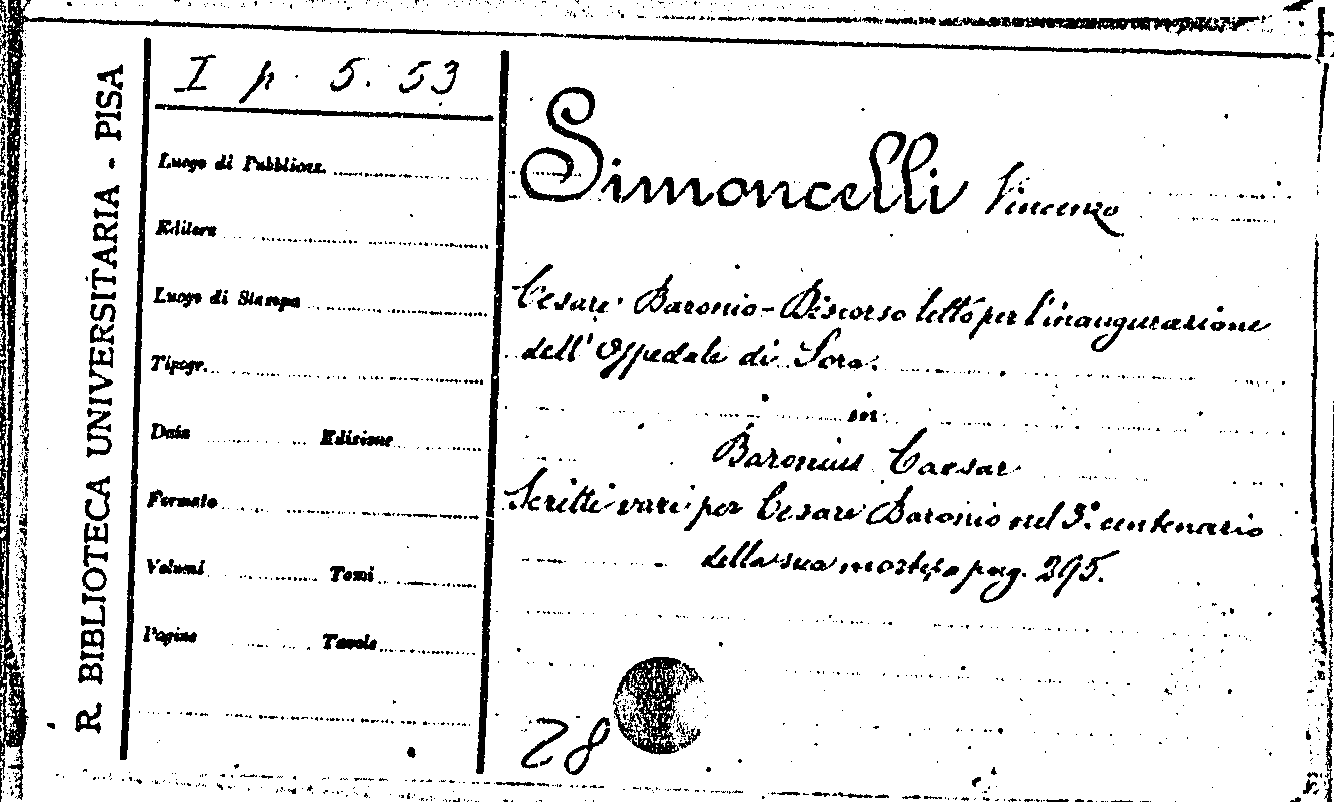 R. BIBLIOTECA UNIVERSITARIA - PISA
I p. 5. 53
Luogo di Pubblicaz.
Editore
Luogo di Stampa
Tipogr.
Data Edizione
Formato
Volumi Tomi
Pagine Tavole
Simoncelli Vincenzo
Cesare Baronio - Discorso letto per l'inaugurazione
dell'Ospedale di Sora.
in
Baronius Caesar
Scritti vari per Cesare Baronio nel 3.° centenario
della sua morte, a pag. 295.
28